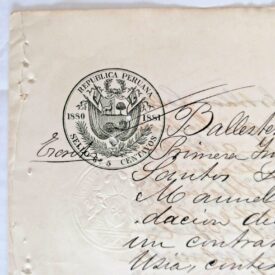 REPUBLICA PERUANA
1880 1881
SELLO 5º CENTIMOS
Ballest
Primera In
Santos
Manuel
dacion di
un contra
Usia, conte